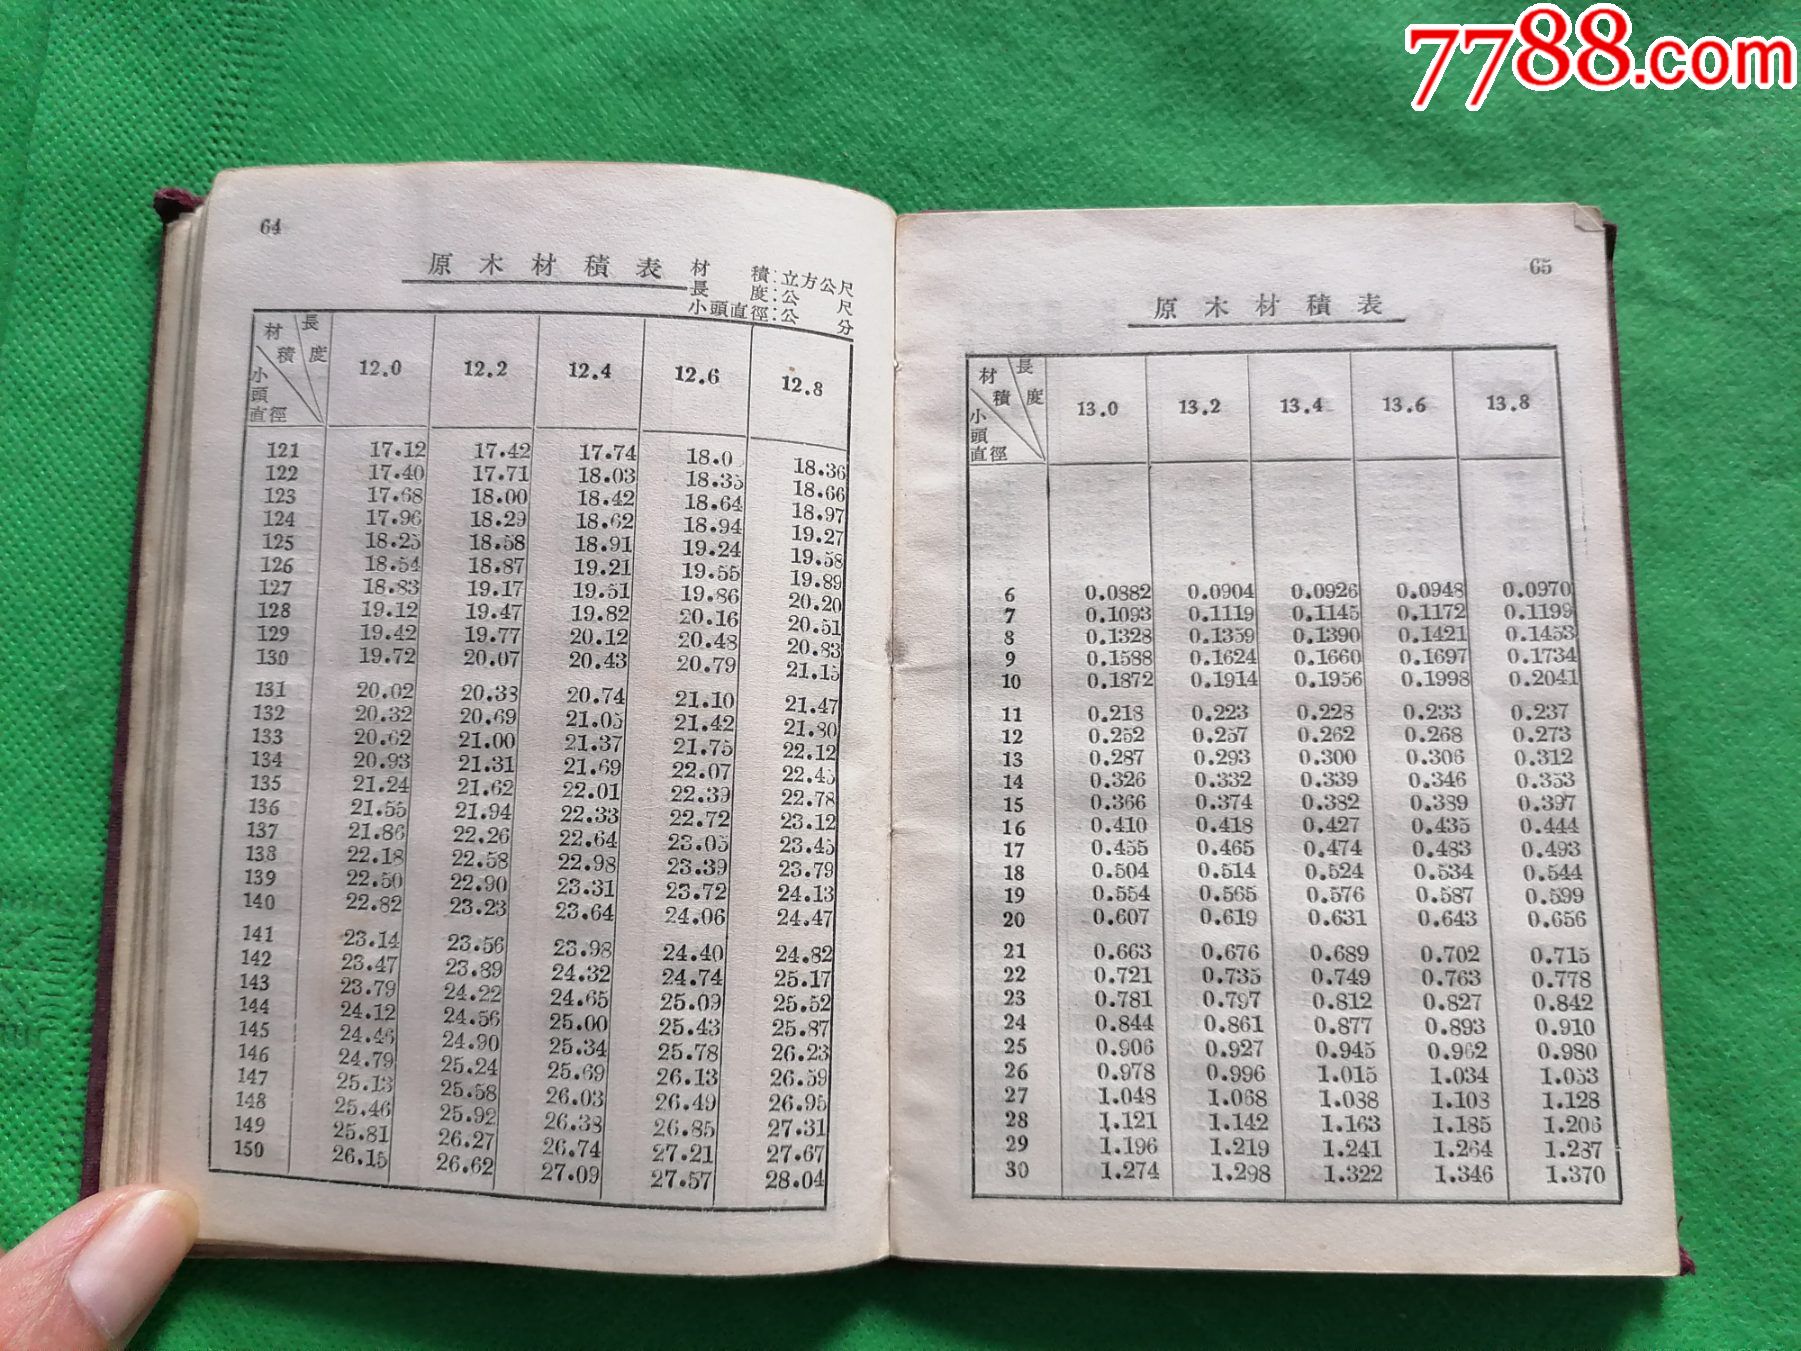 7788.com
64
原木材積表 材積:立方公尺
長度:公尺
小頭直徑:公分
材積 長度 小頭直徑 12.0 12.2 12.4 12.6 12.8
121 17.12 17.42 17.74 18.0 18.36
122 17.40 17.71 18.03 18.35 18.66
123 17.68 18.00 18.42 18.64 18.97
124 17.96 18.29 18.62 18.94 19.27
125 18.25 18.58 18.91 19.24 19.58
126 18.54 18.87 19.21 19.55 19.89
127 18.83 19.17 19.51 19.86 20.20
128 19.12 19.47 19.82 20.16 20.51
129 19.42 19.77 20.12 20.48 20.83
130 19.72 20.07 20.43 20.79 21.15
131 20.02 20.38 20.74 21.10 21.47
132 20.32 20.69 21.05 21.42 21.80
133 20.62 21.00 21.37 21.75 22.12
134 20.93 21.31 21.69 22.07 22.45
135 21.24 21.62 22.01 22.39 22.78
136 21.55 21.94 22.33 22.72 23.12
137 21.86 22.26 22.64 23.05 23.45
138 22.18 22.58 22.98 23.39 23.79
139 22.50 22.90 23.31 23.72 24.13
140 22.82 23.23 23.64 24.06 24.47
141 23.14 23.56 23.98 24.40 24.82
142 23.47 23.89 24.32 24.74 25.17
143 23.79 24.22 24.65 25.09 25.52
144 24.12 24.56 25.00 25.43 25.87
145 24.46 24.90 25.34 25.78 26.23
146 24.79 25.24 25.69 26.13 26.59
147 25.13 25.58 26.03 26.49 26.95
148 25.46 25.92 26.38 26.85 27.31
149 25.81 26.27 26.74 27.21 27.67
150 26.15 26.62 27.09 27.57 28.04
65
原木材積表
材積 長度 小頭直徑 13.0 13.2 13.4 13.6 13.8
6 0.0882 0.0904 0.0926 0.0948 0.0970
7 0.1093 0.1119 0.1145 0.1172 0.1199
8 0.1328 0.1359 0.1390 0.1421 0.1453
9 0.1588 0.1624 0.1660 0.1697 0.1734
10 0.1872 0.1914 0.1956 0.1998 0.2041
11 0.218 0.223 0.228 0.233 0.237
12 0.252 0.257 0.262 0.268 0.273
13 0.287 0.293 0.300 0.306 0.312
14 0.326 0.332 0.339 0.346 0.353
15 0.366 0.374 0.382 0.389 0.397
16 0.410 0.418 0.427 0.435 0.444
17 0.455 0.465 0.474 0.483 0.493
18 0.504 0.514 0.524 0.534 0.544
19 0.554 0.565 0.576 0.587 0.599
20 0.607 0.619 0.631 0.643 0.656
21 0.663 0.676 0.689 0.702 0.715
22 0.721 0.735 0.749 0.763 0.778
23 0.781 0.797 0.812 0.827 0.842
24 0.844 0.861 0.877 0.893 0.910
25 0.906 0.927 0.945 0.962 0.980
26 0.978 0.996 1.015 1.034 1.053
27 1.048 1.068 1.088 1.108 1.128
28 1.121 1.142 1.163 1.185 1.206
29 1.196 1.219 1.241 1.264 1.287
30 1.274 1.298 1.322 1.346 1.370